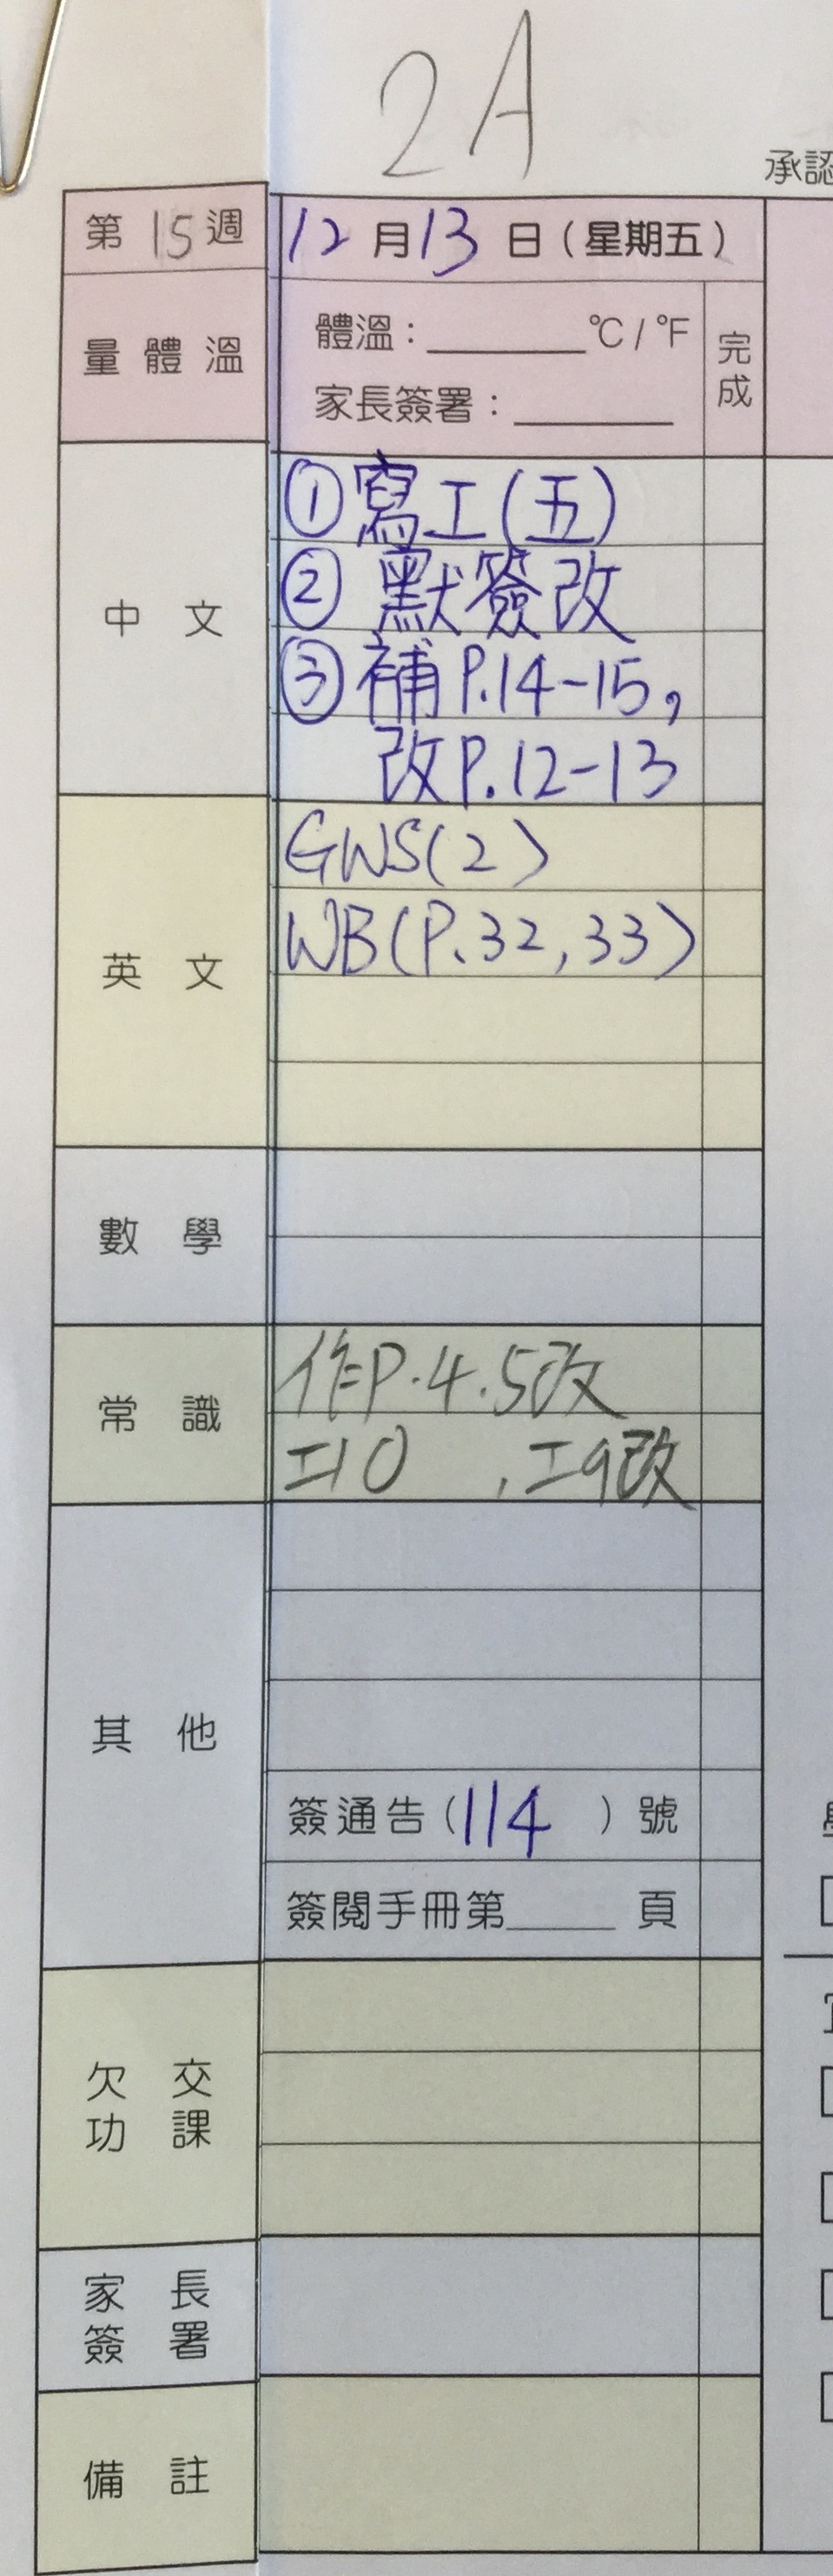 2A
承認
第15週
12月13日(星期五)
量體溫
體溫：______°C / °F
家長簽署：______
完成
中文
①寫工(五)
②默簽改
③補P.14-15,
改P.12-13
英文
GWS(2)
WB(P.32,33)
數學
常識
作P.4.5改
工10 , 工9改
其他
簽通告(114)號
簽閱手冊第____頁
欠交功課
家長簽署
備註